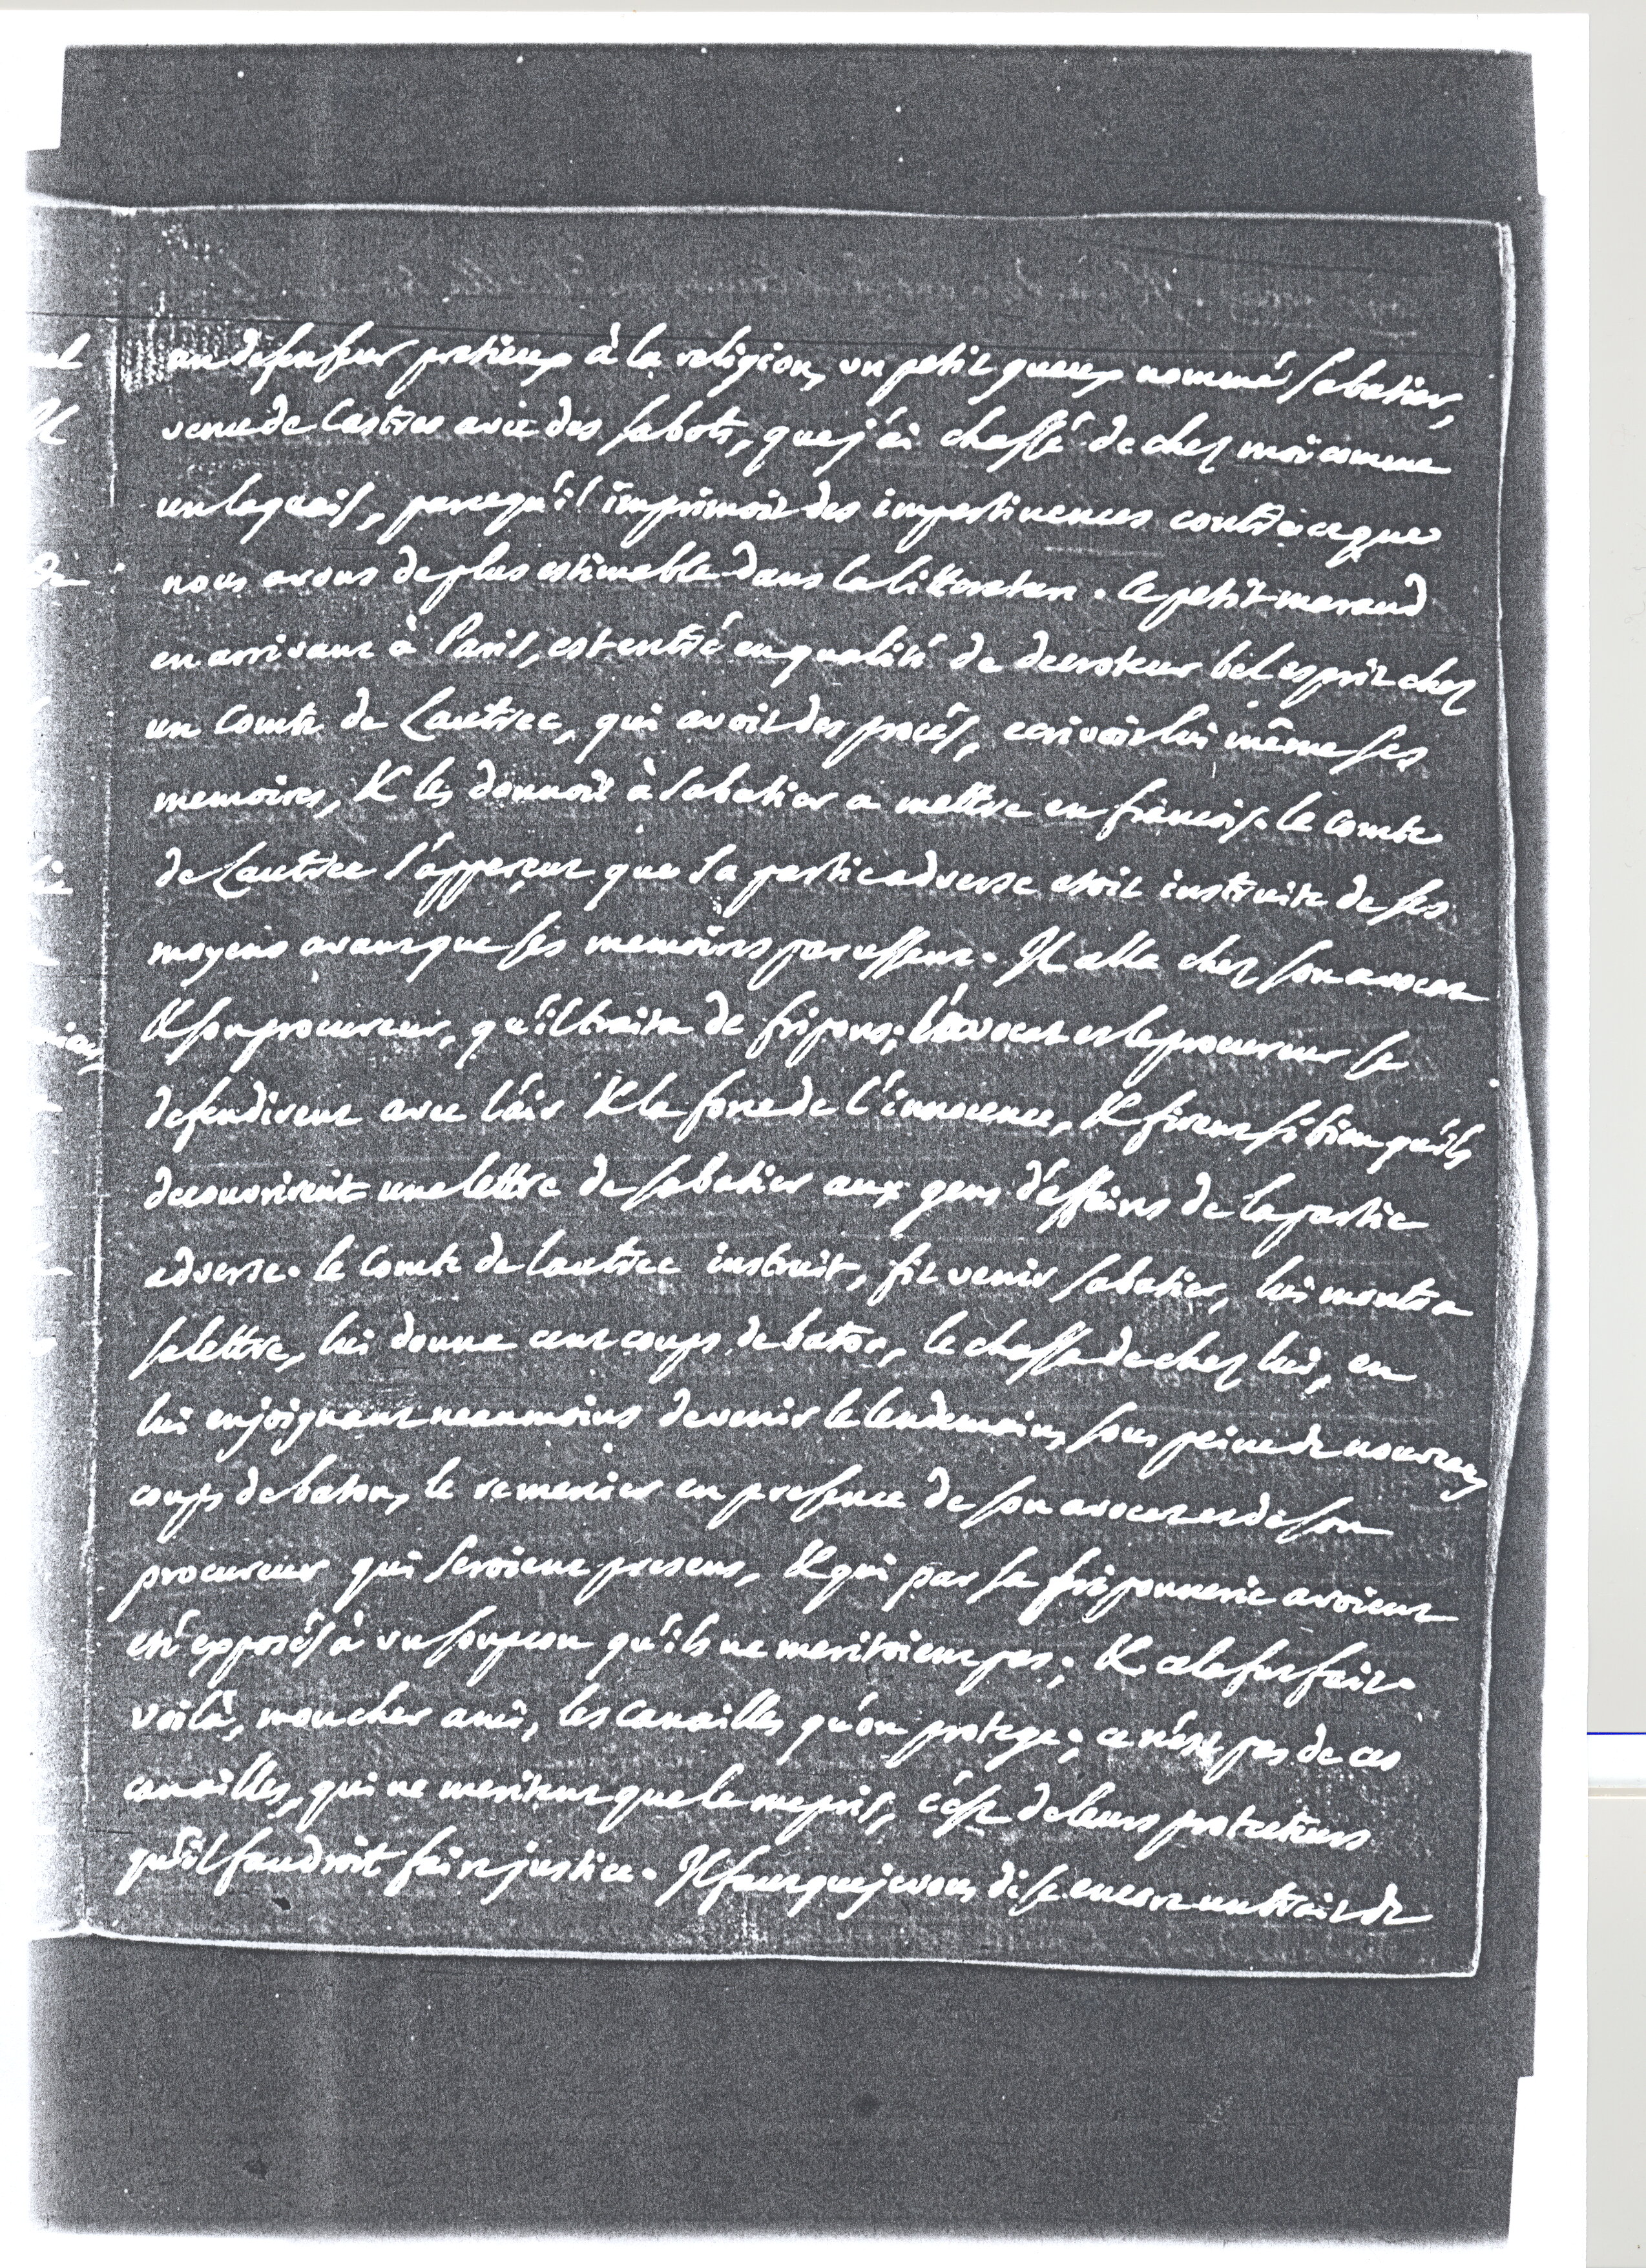 un defenseur pretieux à la religion, un petit gueux nommé Sabatier,
venu de Castres avec des sabots, que j'ai chassé de chez moi comme
un laquais, parcequ'il imprimoit des impertinences contre ce que
nous avons de plus estimable dans la litterature. le petit maraud
en arrivant à Paris, est entré en qualité de decroteur bel esprit chez
un Comte de Lautrec, qui avoit des procés, ecrivoit lui même ses
memoires, & les donnoit à Sabatier a mettre en françois. le comte
de Lautrec s'apperçut que sa partie adverse etoit instruite de ses
moyens avant que ses memoires parussent. Il alla chez son avocat
& son procureur, qu'il traita de fripons; l'avocat et le procureur se
defendirent avec l'air & la force de l'innocence, & firent si bien qu'ils
decouvrirent une lettre de Sabatier aux gens d'affaires de la partie
adverse. le Comte de Lautrec instruit, fit venir Sabatier, lui montra
sa lettre, lui donna cent coups de baton, le chassa de chez lui, en
lui enjoignant neanmoins de venir le lendemain, sous peine de nouveaux
coups de baton, le remercier en presence de son avocat et de son
procureur qui seroient presens, & qui par sa friponnerie avoient
eté exposés à un soupçon qu'ils ne meritoient pas; & cela fut fait.
voilà, mon cher ami, les canailles qu'on protege; ce n'est pas de ces
canailles, qui ne meritent que le mepris, c'est de leurs protecteurs
qu'il faudroit faire justice. Il faut que je vous dise encore un trait de